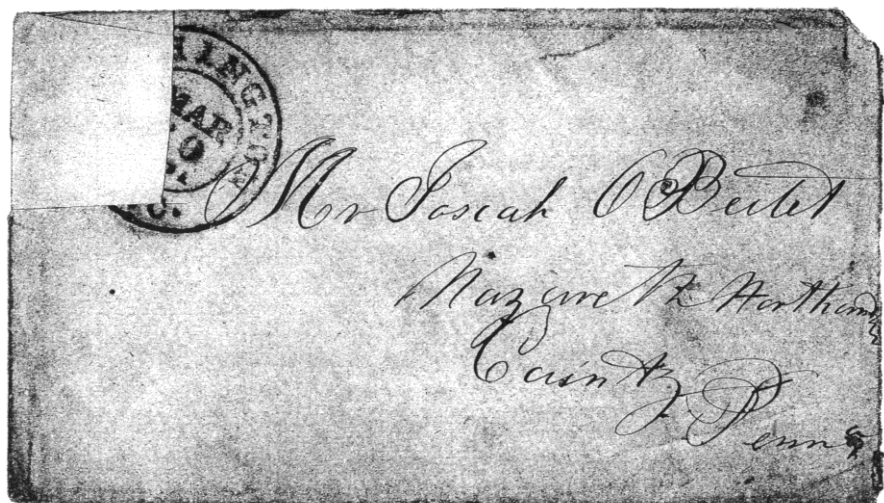 HINGTON
MAR
D.C.
Mr Josiah O Beitel
Nazareth Northamp
County
Penn